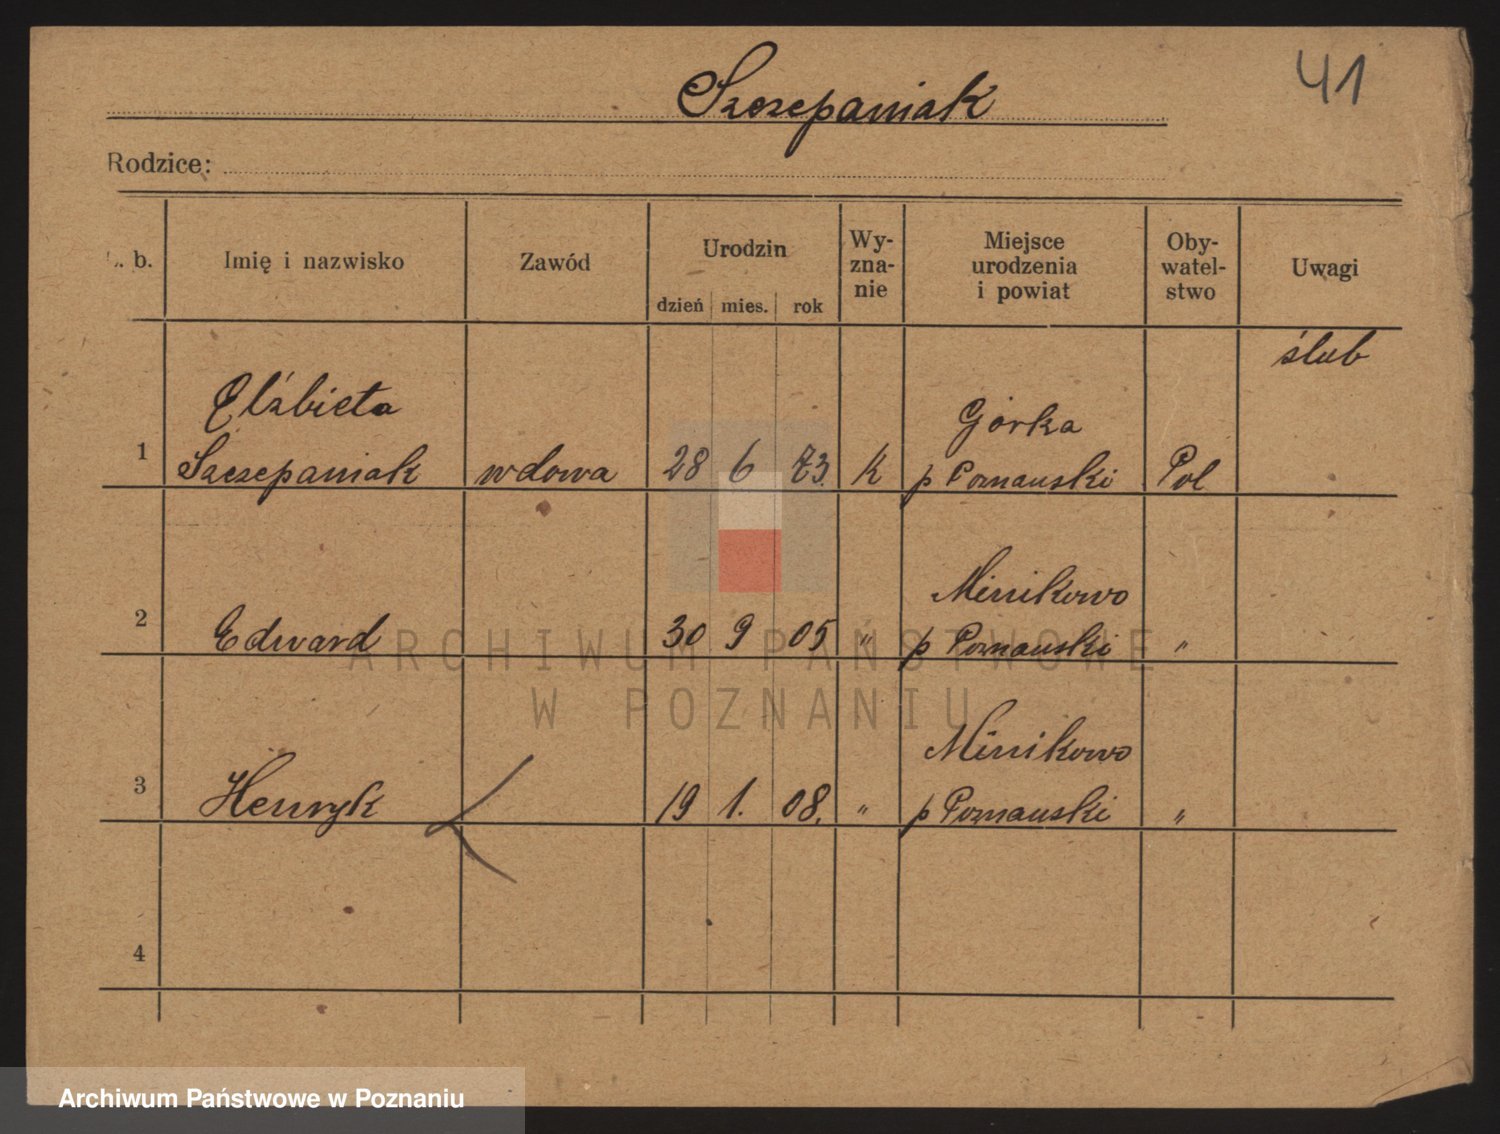 41
Szczepaniak
Rodzice:
L. b.
Imię i nazwisko
Zawód
Urodzin
dzień mies. rok
Wy-
zna-
nie
Miejsce
urodzenia
i powiat
Oby-
watel-
stwo
Uwagi
ślub
1
Elżbieta
Szczepaniak
wdowa
28 6 73.
K
Górka
p Poznański
Pol
2
Edward
30 9 05
"
Minikowo
p Poznański
"
3
Henryk
19 1. 08.
"
Minikowo
p Poznański
"
4
ARCHIWUM PAŃSTWOWE
W POZNANIU
Archiwum Państwowe w Poznaniu